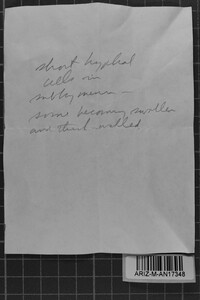 short hyphal
cells in
subhymenium
some becoming swollen
and thick walled
ARIZ-M-AN17348